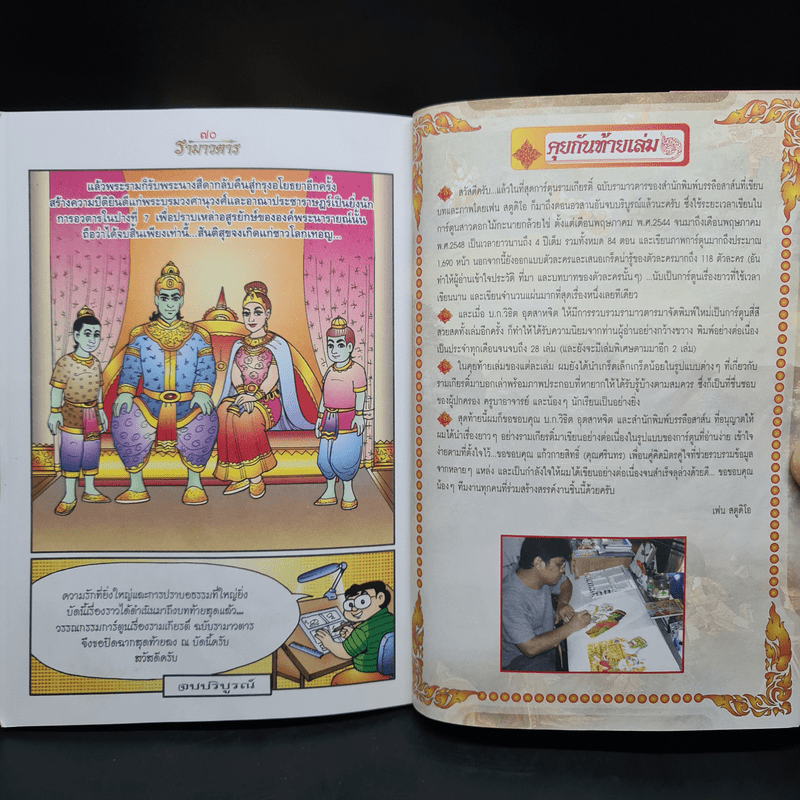 ๗๐
รามาวตาร
แล้วพระรามก็รับพระนางสีดากลับคืนสู่กรุงอโยธยาอีกครั้ง
สร้างความปีติยินดีแก่พระบรมวงศานุวงศ์และอาณาประชาราษฎร์เป็นยิ่งนัก
การอวตารในปางที่ 7 เพื่อปราบเหล่าอสูรยักษ์ขององค์พระนารายณ์นั้น
ถือว่าได้จบสิ้นเพียงเท่านี้...สันติสุขจงเกิดแก่ชาวโลกเทอญ...
ความรักที่ยิ่งใหญ่และการปราบอธรรมที่ใหญ่ยิ่ง
บัดนี้เรื่องราวได้ดำเนินมาถึงบทท้ายสุดแล้ว...
วรรณกรรมการ์ตูนเรื่องรามเกียรติ์ ฉบับรามาวตาร
จึงขอปิดฉากสุดท้ายลง ณ บัดนี้ครับ
สวัสดีครับ
จบบริบูรณ์
คุยกันท้ายเล่ม
สวัสดีครับ...แล้วในที่สุดการ์ตูนรามเกียรติ์ ฉบับรามาวตารของสำนักพิมพ์บรรลือสาส์นที่เขียน
บทและภาพโดยเฟน สตูดิโอ ก็มาถึงตอนอวสานอันจบบริบูรณ์แล้วนะครับ ซึ่งใช้ระยะเวลาเขียนใน
การ์ตูนสาวดอกไม้กะนายกล้วยไข่ ตั้งแต่เดือนพฤษภาคม พ.ศ.2544 จนมาถึงเดือนพฤษภาคม
พ.ศ.2548 เป็นเวลายาวนานถึง 4 ปีเต็ม รวมทั้งหมด 84 ตอน และเขียนภาพการ์ตูนมากถึงประมาณ
1,690 หน้า นอกจากนี้ยังออกแบบตัวละครและเสนอเกร็ดน่ารู้ของตัวละครมากถึง 118 ตัวละคร (อัน
ทำให้ผู้อ่านเข้าใจประวัติ ที่มา และบทบาทของตัวละครนั้นๆ) ...นับเป็นการ์ตูนเรื่องยาวที่ใช้เวลา
เขียนนาน และเขียนจำนวนแผ่นมากที่สุดเรื่องหนึ่งเลยทีเดียว
และเมื่อ บ.ก.วิธิต อุตสาหจิต ให้มีการรวบรวมรามาวตารมาจัดพิมพ์ใหม่เป็นการ์ตูนสี่สี
สวยสดทั้งเล่มอีกครั้ง ก็ทำให้ได้รับความนิยมจากท่านผู้อ่านอย่างกว้างขวาง พิมพ์อย่างต่อเนื่อง
เป็นประจำทุกเดือนจนจบถึง 28 เล่ม (และยังจะมีเล่มพิเศษตามมาอีก 2 เล่ม)
ในคุยท้ายเล่มของแต่ละเล่ม ผมยังได้นำเกร็ดเล็กเกร็ดน้อยในรูปแบบต่างๆ ที่เกี่ยวกับ
รามเกียรติ์มาบอกเล่าพร้อมภาพประกอบที่หายากให้ได้รับรู้บ้างตามสมควร ซึ่งก็เป็นที่ชื่นชอบ
ของผู้ปกครอง ครูบาอาจารย์ และน้องๆ นักเรียนเป็นอย่างยิ่ง
สุดท้ายนี้ผมก็ขอขอบคุณ บ.ก.วิธิต อุตสาหจิต และสำนักพิมพ์บรรลือสาส์น ที่อนุญาตให้
ผมได้นำเรื่องยาวๆ อย่างรามเกียรติ์มาเขียนอย่างต่อเนื่องในรูปแบบของการ์ตูนที่อ่านง่าย เข้าใจ
ง่ายตามที่ตั้งใจไว้...ขอขอบคุณ แก้วกายสิทธิ์ (คุณศรินทร) เพื่อนคู่คิดมิตรคู่ใจที่ช่วยรวบรวมข้อมูล
จากหลายๆ แหล่ง และเป็นกำลังใจให้ผมได้เขียนอย่างต่อเนื่องจนสำเร็จลุล่วงด้วยดี... ขอขอบคุณ
น้องๆ ทีมงานทุกคนที่ร่วมสร้างสรรค์งานชิ้นนี้ด้วยครับ
เฟน สตูดิโอ